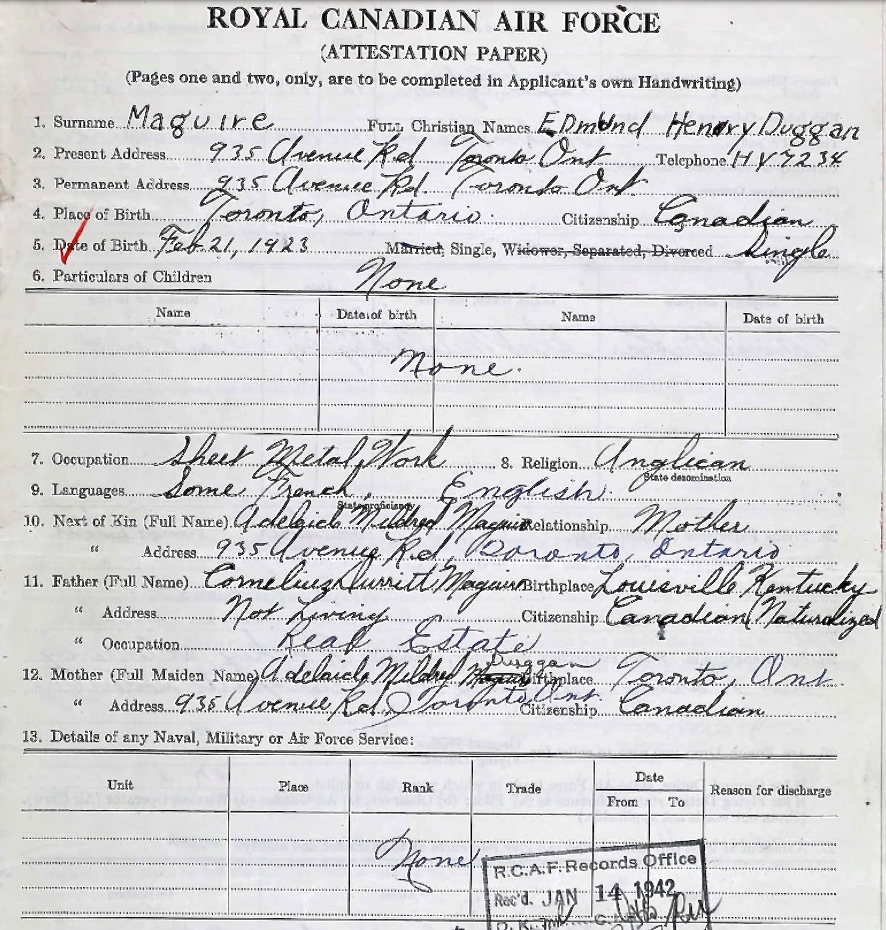 ROYAL CANADIAN AIR FORCE
(ATTESTATION PAPER)
(Pages one and two, only, are to be completed in Applicant's own Handwriting)
1. Surname Maguire Full Christian Names Edmund Henry Duggan
2. Present Address 935 Avenue Rd Toronto Ont Telephone HY7234
3. Permanent Address 935 Avenue Rd. Toronto Ont
4. Place of Birth Toronto, Ontario. Citizenship Canadian
5. Date of Birth Feb. 21, 1923 Married, Single, Widower, Separated, Divorced Single
6. Particulars of Children None
Name Date of birth Name Date of birth
None.
7. Occupation Sheet Metal Work 8. Religion Anglican
State denomination
9. Languages Some French, English.
State proficiency
10. Next of Kin (Full Name) Adelaide Mildred Maguire Relationship Mother
" Address 935 Avenue Rd, Toronto, Ontario
11. Father (Full Name) Cornelius Maguire Birthplace Louisville Kentucky
" Address Not Living Citizenship Canadian (Naturalized
" Occupation Real Estate
12. Mother (Full Maiden Name) Adelaide Mildred Duggan Birthplace Toronto, Ont.
" Address 935 Avenue Rd, Toronto, Ont. Citizenship Canadian
13. Details of any Naval, Military or Air Force Service:
Unit Place Rank Trade Date Reason for discharge
From To
None
R.C.A.F. Records Office
Rec'd. JAN 14 1942